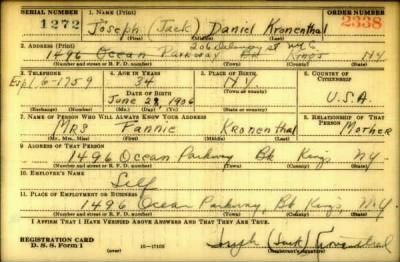 SERIAL NUMBER 1. NAME (Print) ORDER NUMBER
1272 Joseph (Jack) Daniel Kronenthal 2338
(First) (Middle) (Last)
2. ADDRESS (Print) 206 St NYC
1496 Ocean Parkway Bk Kings N.Y.
(Number and street or R. F. D. number) (Town) (County) (State)
3. TELEPHONE 4. AGE IN YEARS 5. PLACE OF BIRTH 6. COUNTRY OF CITIZENSHIP
34 N.Y.
Espl. 6-1759 DATE OF BIRTH (Town or county) U.S.A.
June 28, 1906
(Exchange) (Number) (Mo.) (Day) (Yr.) (State or country)
7. NAME OF PERSON WHO WILL ALWAYS KNOW YOUR ADDRESS 8. RELATIONSHIP OF THAT PERSON
Mrs Fannie Kronenthal Mother
(Mr., Mrs., Miss) (First) (Middle) (Last)
9. ADDRESS OF THAT PERSON
1496 Ocean Parkway Bk Kings N.Y.
(Number and street or R. F. D. number) (Town) (County) (State)
10. EMPLOYER'S NAME
Self
11. PLACE OF EMPLOYMENT OR BUSINESS
1496 Ocean Parkway, Bk Kings, N.Y.
(Number and street or R. F. D. number) (Town) (County) (State)
I AFFIRM THAT I HAVE VERIFIED ABOVE ANSWERS AND THAT THEY ARE TRUE.
REGISTRATION CARD
D. S. S. Form 1 (over) 16-17105 Joseph (Jack) Kronenthal